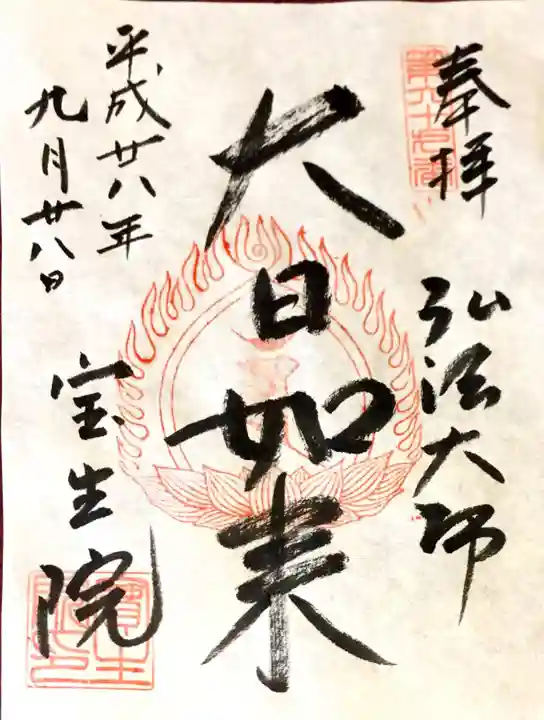 奉拝
弘法大師
大日如来
平成廿八年
九月廿八日
宝生院